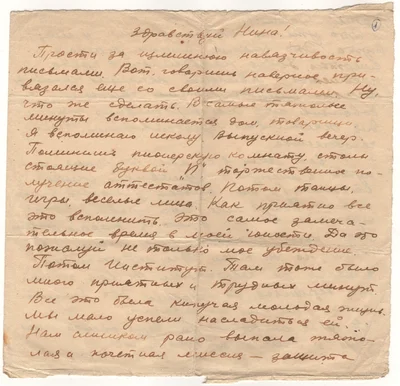 Здравствуй Нина!
Прости за излишнюю навязчивость
письмами. Вот говоришь наверное при-
вязался еще со своими письмами. Ну,
что же сделать. В самые тяжелые
минуты вспоминается дом, товарищи.
Я вспоминаю школу Выпускной вечер.
Помнишь пионерскую комнату, столы
стоящие буквой "П" торжественное по-
лучение аттестатов. Потом танцы,
игры, веселье лица. Как приятно все
это вспомнить. Это самое замеча-
тельное время в моей юности. Да это
пожалуй не только мое убеждение.
Потом Институт. Там тоже было
много приятных и трудных минут
Все это была кипучая молодая жизнь.
Мы мало успели насладиться ей.
Нам слишком рано выпала тяже-
лая и почетная миссия – защита